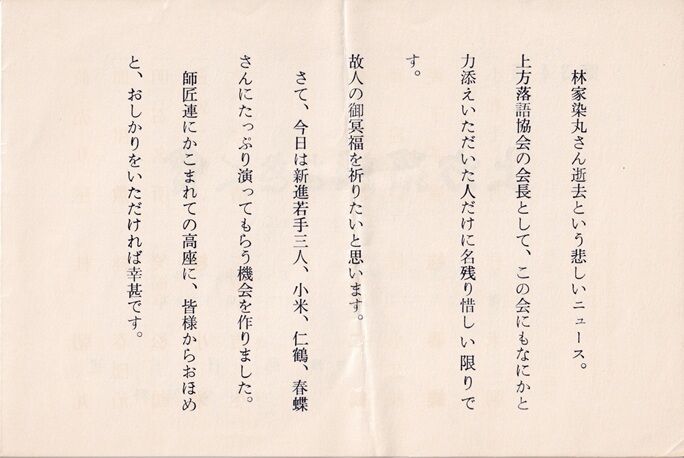 林家染丸さん逝去という悲しいニュース。
上方落語協会の会長として、この会にもなにかと
力添えいただいた人だけに名残り惜しい限りで
す。
故人の御冥福を祈りたいと思います。
さて、今日は新進若手三人、小米、仁鶴、春蝶
さんにたっぷり演ってもらう機会を作りました。
師匠連にかこまれての高座に、皆様からおほめ
と、おしかりをいただければ幸甚です。